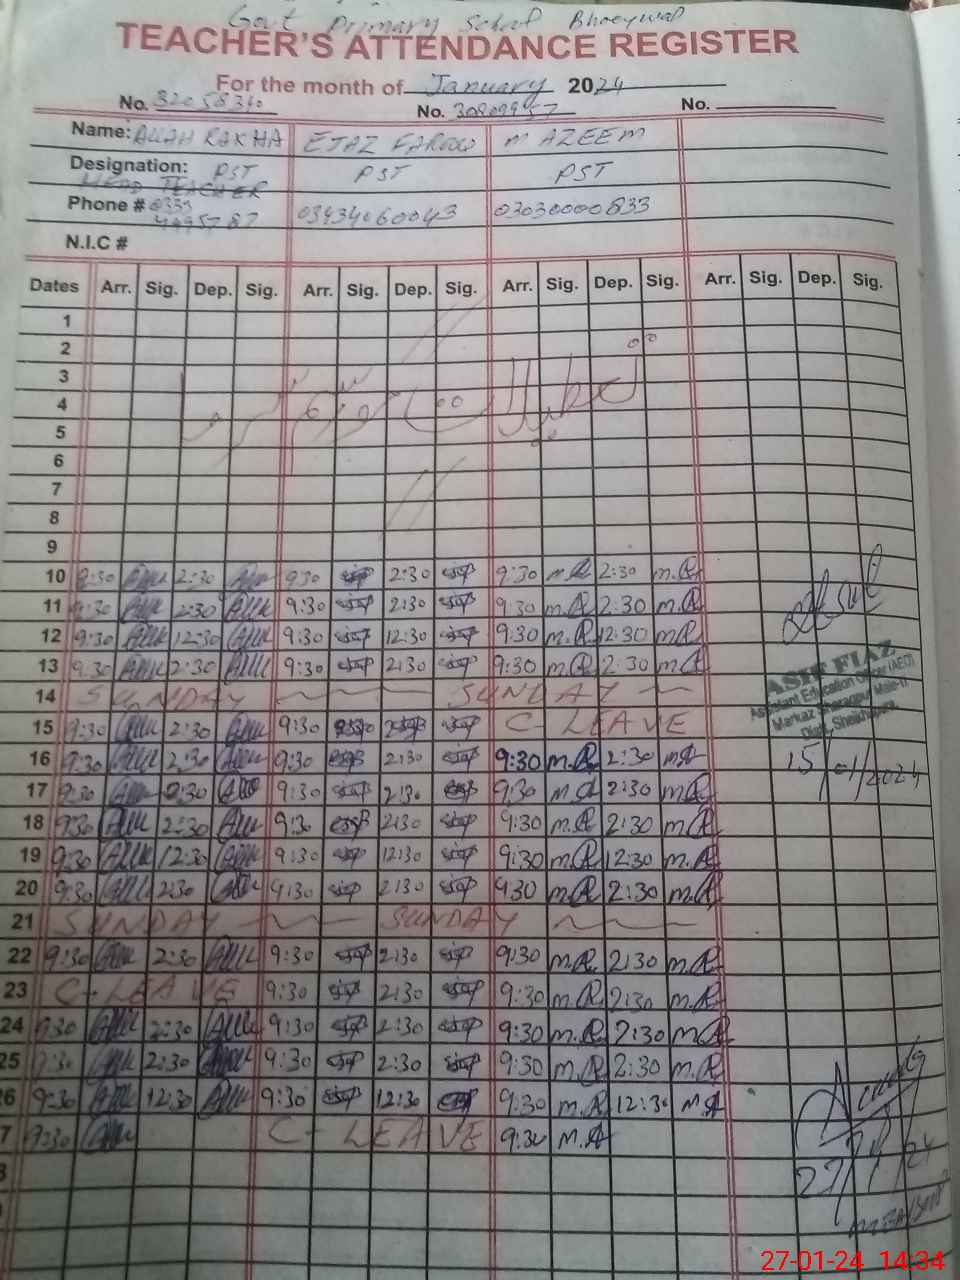 Govt Primary School Bhoeywal
TEACHER'S ATTENDANCE REGISTER
For the month of January 2024
No. 32058340 No. 30909957 No.
Name: ALLAH RAKHA EJAZ FAROOQ M AZEEM
Designation: PST PST PST
HEAD TEACHER
Phone # 0333 03434060043 03030000833
N.I.C #
Dates Arr. Sig. Dep. Sig. Arr. Sig. Dep. Sig. Arr. Sig. Dep. Sig. Arr. Sig. Dep. Sig.
1
2
3
4
5
6
7
8
9
10 9:30 2:30 930 2:30 9:30 m.A 2:30 m.A
11 9:30 2:30 9:30 2:30 9:30 m.A 2:30 m.A
12 9:30 12:30 9:30 12:30 9:30 m.A 12:30 m.A
13 9:30 2:30 9:30 2:30 9:30 m.A 2:30 m.A
14 SUNDAY SUNDAY
15 9:30 2:30 9:30 C-LEAVE
16 9:30 2:30 9:30 2:30 9:30 m.A 2:30 m.A
17 9:30 2:30 9:30 2:30 9:30 m.A 2:30 m.A
18 9:30 2:30 9:30 2:30 9:30 m.A 2:30 m.A
19 9:30 12:30 9:30 12:30 9:30 m.A 12:30 m.A
20 9:30 2:30 9:30 2:30 9:30 m.A 2:30 m.A
21 SUNDAY SUNDAY
22 9:30 2:30 9:30 2:30 9:30 m.A 2:30 m.A
23 C-LEAVE 9:30 2:30 9:30 m.A 2:30 m.A
24 9:30 2:30 9:30 2:30 9:30 m.A 2:30 m.A
25 9:30 2:30 9:30 2:30 9:30 m.A 2:30 m.A
26 9:30 12:30 9:30 12:30 9:30 m.A 12:30 m.A
7 9:30 C-LEAVE 9:30 m.A
8
ASIF FIAZ
Assistant Education Officer (AEO)
Markaz Sharaqpur Male-II
Distt. Sheikhupura.
15/01/2024
27/1/24
27-01-24 14:34